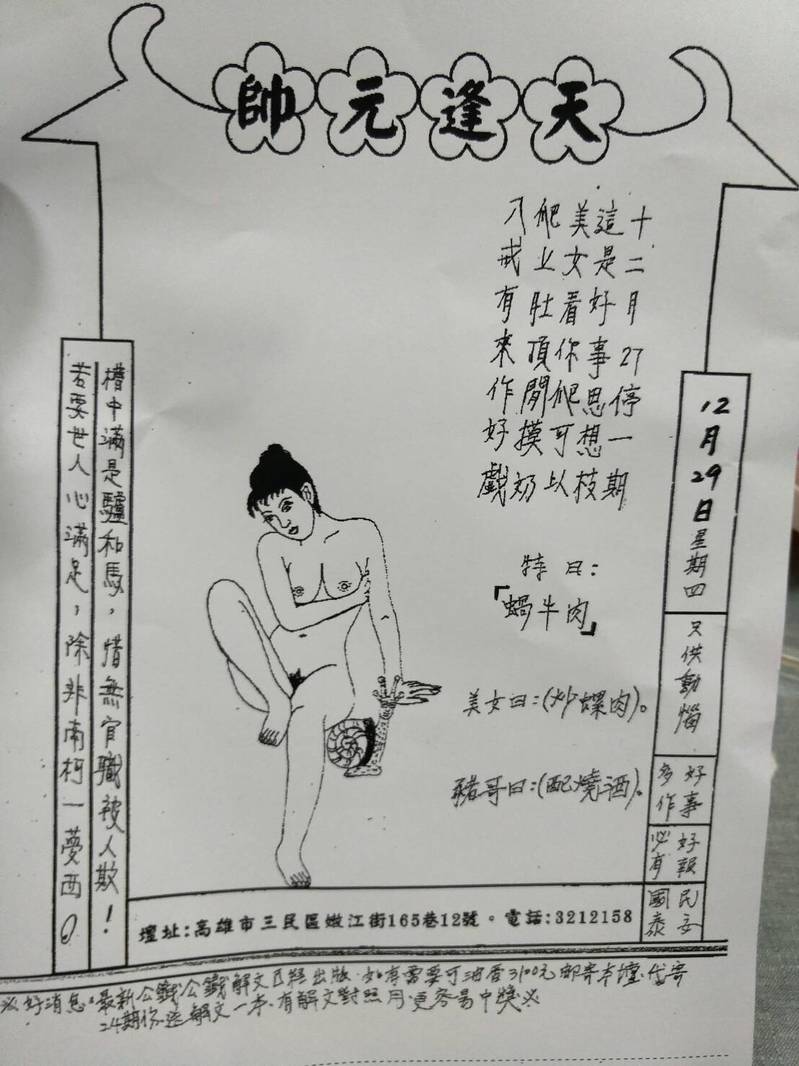 天逢元帥
十二月27停一期
這是好事思想枝
美女看你爬可以
爬上肚頂閒摸奶
八戒有來作好戲
特曰：
「蝸牛肉」
美女曰：(炒螺肉)。
豬哥曰：(配燒酒)。
12月29日星期四
只供動惱
好事
多作
好報
必有
民安
國泰
槽中滿是驢和馬，惜無官職被人欺！
若要世人心滿足，除非南柯一夢西。
壇址:高雄市三民區嫩江街165巷12號。電話:3212158
※好消息:最新公籤公籤解文已經出版.如有需要可油香3100元郵寄本壇.當寄
24期你.送解文一本.有解文對照月.更容易中獎※